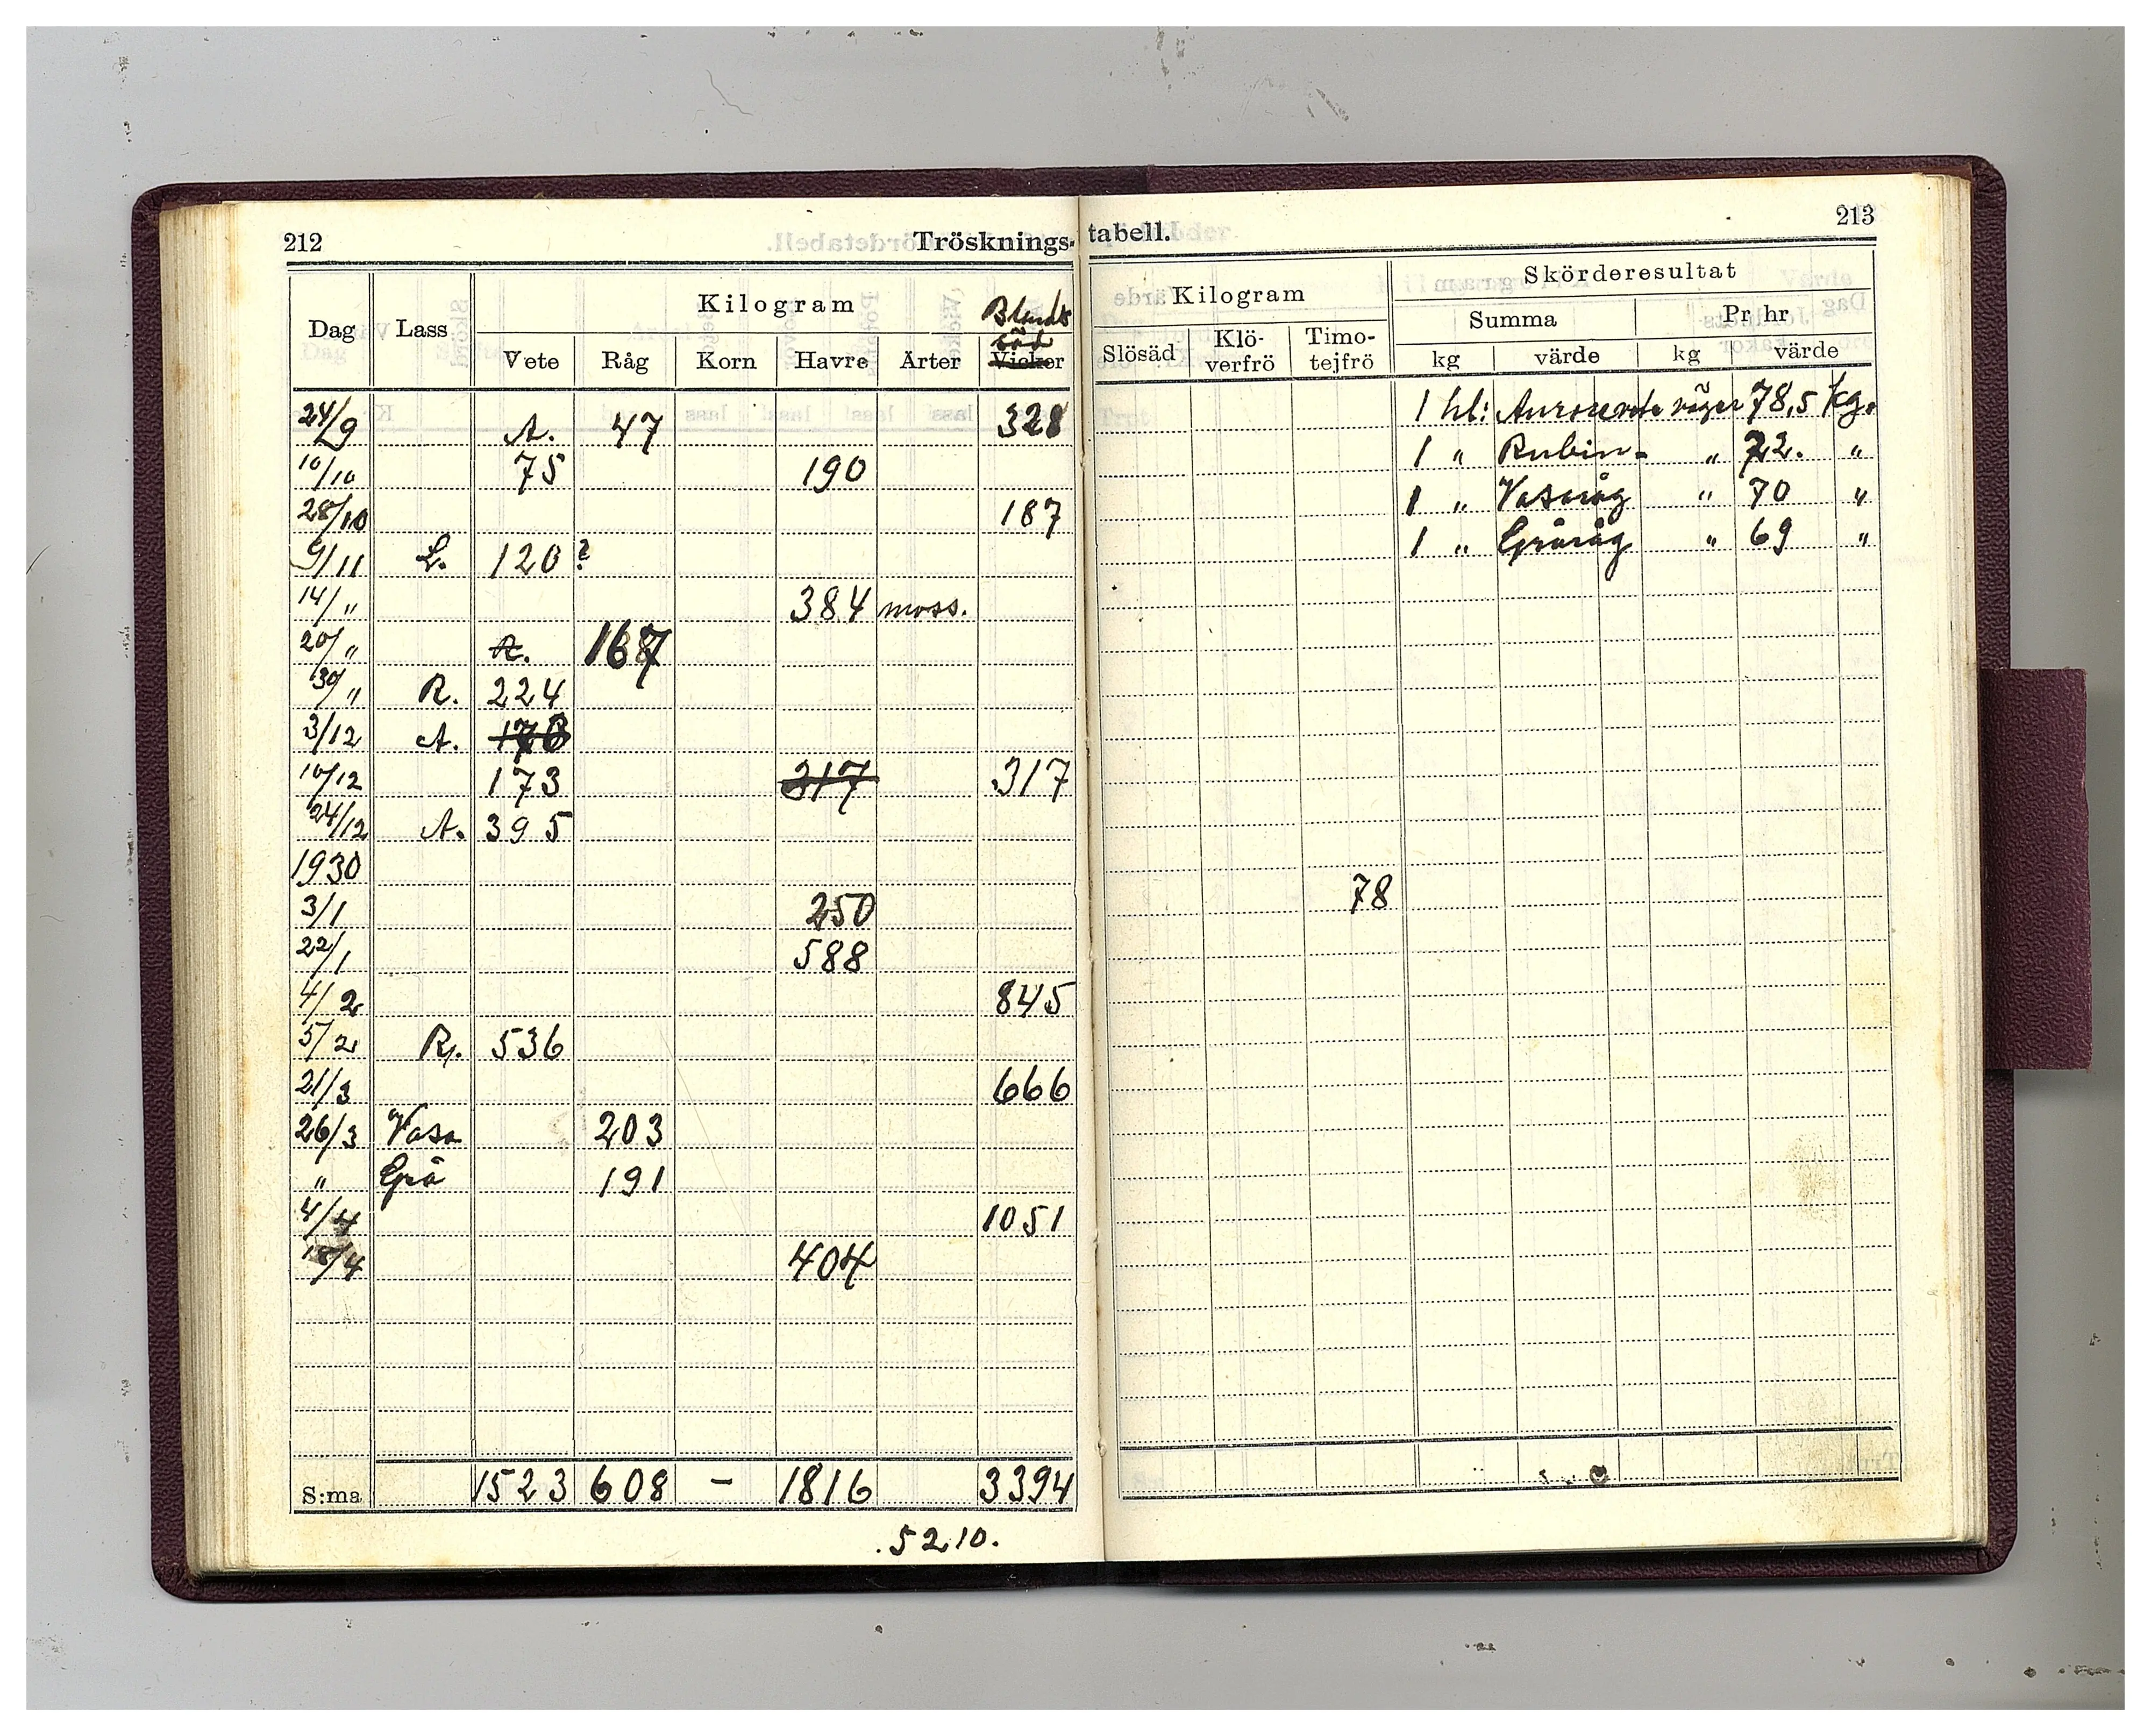 212
Trösknings-
Dag Lass Kilogram Blands
säd
Vete Råg Korn Havre Ärter Vicker
24/9 A. 47 328
10/10 75 190
28/10 187
9/11 L. 120?
14/" 384 moss.
20/" R. 167
30/" R. 224
3/12 A.
10/12 173 317 317
24/12 A. 395
1930
3/1 250
22/1 588
4/2 845
5/2 R. 536
21/3 666
26/3 Vasa 203
" Grå 191
4/4 1051
404
S:ma 1523 608 – 1816 3394
.5210.
213
tabell.
Kilogram Skörderesultat
Summa Pr hr
Slösäd Klö-
verfrö Timo-
tejfrö kg värde kg värde
1 hl: Aurorevete väger 78,5 kg.
1 " Rubin- " 72. "
1 " Vasaråg " 70 "
1 " Gråråg " 69 "
78